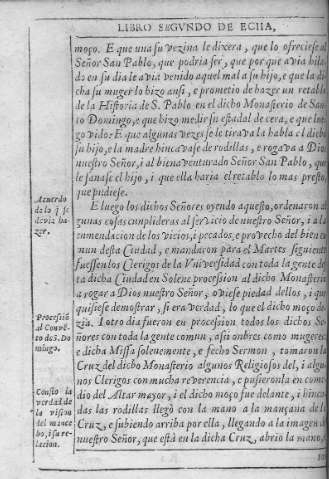 LIBRO SEGVNDO DE ECIIA,
moço. E que una su vezina le dixera, que lo ofreciese al
Señor San Pablo, que podria ser, que por que avia hila-
do en su dia le avia venido aquel mal a su hijo, e que la di-
cha su muger lo hizo ansi, e prometio de hazer un retablo
de la Historia de S. Pablo en el dicho Monasterio de San-
to Domingo, e que hizo medir su estadal de cera, e que lue-
go vido: E que algunas vezes se le tirava la habla el dicho
su hijo, e la madre hincavase de rodillas, e rogava a Dios
nuestro Señor, i al bienaventurado Señor San Pablo, que
le sanase el hijo, i que ella haria el retablo lo mas presto,
que pudiese.
Acuerdo
de lo q̃ se
devia ha-
zer.
E luego los dichos Señores oyendo aquesto, ordenaron al-
gunas cosas cumplideras al servicio de nuestro Señor, i a la
enmendacion de los vicios, i pecados, e provecho del bien co-
mun desta Ciudad, e mandaron para el Martes siguiente
fuessen los Clerigos de la Vniversidad con toda la gente de-
ta dicha Ciudad en Solene procession al dicho Monasterio
a rogar a Dios nuestro Señor, oviese piedad dellos, i que
quisiese demostrar, si era verdad, lo que el dicho moço de-
Processiõ
al Convẽ-
to de S. Do
mingo.
zia. I otro dia fueron en procession todos los dichos Se-
ñores con toda la gente comun, asi onbres como mugeres
e dicha Missa solenemente, e fecho Sermon, tomaron la
Cruz del dicho Monasterio algunos Religiosos del, i algu-
nos Clerigos con mucha reverencia, e pusieronla en com-
Consto la
verdad de
la vision
del mance
bo, i su re-
lacion.
dio del Altar mayor, i el dicho moço fue delante, i hinca-
das las rodillas llegò con la mano a la mançana de la
Cruz, e subiendo arriba por ella, llegando a la imagen de
nuestro Señor, que està en la dicha Cruz, abrio la mano,